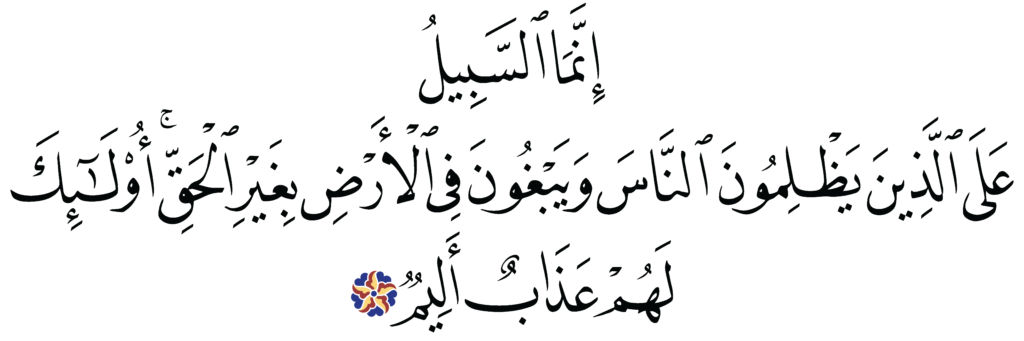 إِنَّمَا ٱلسَّبِيلُ
عَلَى ٱلَّذِينَ يَظْلِمُونَ ٱلنَّاسَ وَيَبْغُونَ فِى ٱلْأَرْضِ بِغَيْرِ ٱلْحَقِّ ۚ أُو۟لَـٰٓئِكَ
لَهُمْ عَذَابٌ أَلِيمٌ